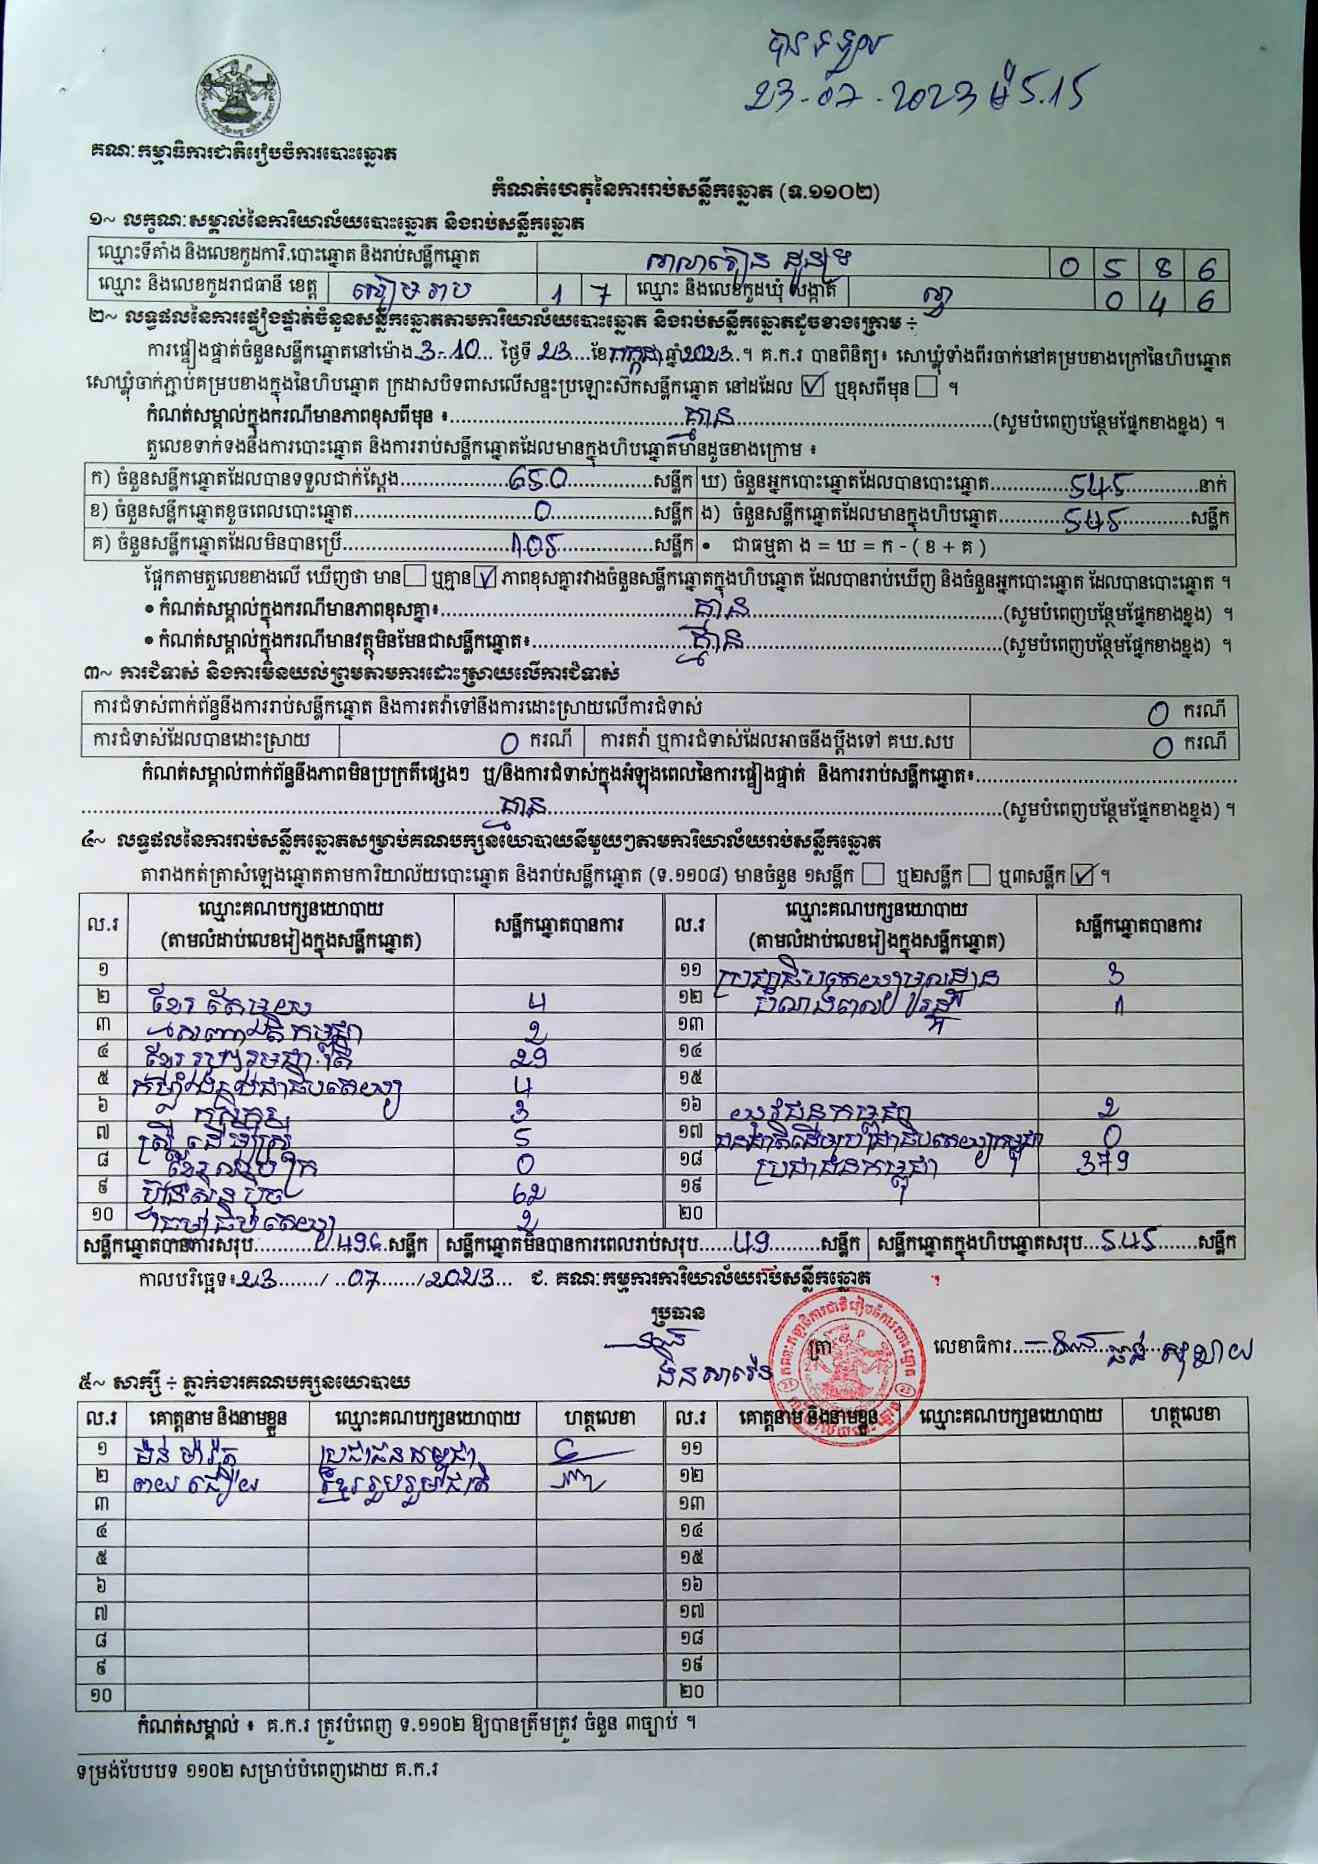 បានទទួល
23-07-2023 ម៉ 5.15
គណៈកម្មាធិការជាតិរៀបចំការបោះឆ្នោត
កំណត់ហេតុនៃការរាប់សន្លឹកឆ្នោត (ទ.១១០២)
១~ លក្ខណៈសម្គាល់នៃការិយាល័យបោះឆ្នោត និងរាប់សន្លឹកឆ្នោត
ឈ្មោះទីតាំង និងលេខកូដការិ.បោះឆ្នោត និងរាប់សន្លឹកឆ្នោត សាលារៀន 0 5 8 6
ឈ្មោះ និងលេខកូដរាជធានី ខេត្ត សៀមរាប 1 7 ឈ្មោះ និងលេខកូដឃុំ សង្កាត់ ល្វា 0 4 6
២~ លទ្ធផលនៃការផ្ទៀងផ្ទាត់ចំនួនសន្លឹកឆ្នោតតាមការិយាល័យបោះឆ្នោត និងរាប់សន្លឹកឆ្នោតដូចខាងក្រោម ÷
ការផ្ទៀងផ្ទាត់ចំនួនសន្លឹកឆ្នោតនៅម៉ោង 3-10... ថ្ងៃទី 23 ....ខែ កក្កដា ឆ្នាំ 2023..។ គ.ក.រ បានពិនិត្យ៖ សោឃ្លុំទាំងពីរចាក់នៅគម្របខាងក្រៅនៃហិបឆ្នោត
សោឃ្លុំចាក់ភ្ជាប់គម្របខាងក្នុងនៃហិបឆ្នោត ក្រដាសបិទពាសលើសន្ទះប្រឡោះស៊កសន្លឹកឆ្នោត នៅដដែល ☑ ឬខុសពីមុន ☐ ។
កំណត់សម្គាល់ក្នុងករណីមានភាពខុសពីមុន ៖........ គ្មាន ........(សូមបំពេញបន្ថែមផ្នែកខាងខ្នង) ។
តួលេខទាក់ទងនឹងការបោះឆ្នោត និងការរាប់សន្លឹកឆ្នោតដែលមានក្នុងហិបឆ្នោតមានដូចខាងក្រោម ៖
ក) ចំនួនសន្លឹកឆ្នោតដែលបានទទួលជាក់ស្តែង........ 650 ........សន្លឹក ឃ) ចំនួនអ្នកបោះឆ្នោតដែលបានបោះឆ្នោត........ 545 ........នាក់
ខ) ចំនួនសន្លឹកឆ្នោតខូចពេលបោះឆ្នោត........ 0 ........សន្លឹក ង) ចំនួនសន្លឹកឆ្នោតដែលមានក្នុងហិបឆ្នោត........ 545 ........សន្លឹក
គ) ចំនួនសន្លឹកឆ្នោតដែលមិនបានប្រើ........ 105 ........សន្លឹក • ជាធម្មតា ង = ឃ = ក - ( ខ + គ )
ផ្អែកតាមតួលេខខាងលើ ឃើញថា មាន ☐ ឬគ្មាន ☑ ភាពខុសគ្នារវាងចំនួនសន្លឹកឆ្នោតក្នុងហិបឆ្នោត ដែលបានរាប់ឃើញ និងចំនួនអ្នកបោះឆ្នោត ដែលបានបោះឆ្នោត ។
• កំណត់សម្គាល់ក្នុងករណីមានភាពខុសគ្នា៖........ គ្មាន ........(សូមបំពេញបន្ថែមផ្នែកខាងខ្នង) ។
• កំណត់សម្គាល់ក្នុងករណីមានវត្ថុមិនមែនជាសន្លឹកឆ្នោត៖........ គ្មាន ........(សូមបំពេញបន្ថែមផ្នែកខាងខ្នង) ។
៣~ ការជំទាស់ និងការមិនយល់ព្រមតាមការដោះស្រាយលើការជំទាស់
ការជំទាស់ពាក់ព័ន្ធនឹងការរាប់សន្លឹកឆ្នោត និងការតវ៉ាទៅនឹងការដោះស្រាយលើការជំទាស់ 0 ករណី
ការជំទាស់ដែលបានដោះស្រាយ 0 ករណី ការតវ៉ា ឬការជំទាស់ដែលអាចនឹងប្តឹងទៅ គឃ.សប 0 ករណី
កំណត់សម្គាល់ពាក់ព័ន្ធនឹងភាពមិនប្រក្រតីផ្សេងៗ ឬ/និងការជំទាស់ក្នុងអំឡុងពេលនៃការផ្ទៀងផ្ទាត់ និងការរាប់សន្លឹកឆ្នោត៖........
........ គ្មាន ........(សូមបំពេញបន្ថែមផ្នែកខាងខ្នង) ។
៤~ លទ្ធផលនៃការរាប់សន្លឹកឆ្នោតសម្រាប់គណបក្សនយោបាយនីមួយៗតាមការិយាល័យរាប់សន្លឹកឆ្នោត
តារាងកត់ត្រាសំឡេងឆ្នោតតាមការិយាល័យបោះឆ្នោត និងរាប់សន្លឹកឆ្នោត (ទ.១១០៨) មានចំនួន ១សន្លឹក ☐ ឬ២សន្លឹក ☐ ឬ៣សន្លឹក ☑ ។
ល.រ ឈ្មោះគណបក្សនយោបាយ (តាមលំដាប់លេខរៀងក្នុងសន្លឹកឆ្នោត) សន្លឹកឆ្នោតបានការ ល.រ ឈ្មោះគណបក្សនយោបាយ (តាមលំដាប់លេខរៀងក្នុងសន្លឹកឆ្នោត) សន្លឹកឆ្នោតបានការ
១ ១១ ប្រជាធិបតេយ្យមូលដ្ឋាន 3
២ ខ្មែរតែមួយ 4 ១២ 1
៣ សញ្ជាតិកម្ពុជា 2 ១៣
៤ ខ្មែររួបរួមជាតិ 29 ១៤
៥ កម្លាំងប្រជាធិបតេយ្យ 4 ១៥
៦ កសិករ 3 ១៦ យុវជនកម្ពុជា 2
៧ ស្រ្តីដើម្បីស្រ្តី 5 ១៧ ជនជាតិដើមប្រជាធិបតេយ្យកម្ពុជា 0
៨ 0 ១៨ ប្រជាជនកម្ពុជា 379
៩ ហ៊្វុនស៊ិនប៉ិច 62 ១៩
១០ ធម្មាធិបតេយ្យ 2 ២០
សន្លឹកឆ្នោតបានការសរុប........ 496 ...សន្លឹក សន្លឹកឆ្នោតមិនបានការពេលរាប់សរុប...... 49 .........សន្លឹក សន្លឹកឆ្នោតក្នុងហិបឆ្នោតសរុប... 545 .......សន្លឹក
កាលបរិច្ឆេទ៖ 23 ......./ .. 07 ....../ 2023 ... ជ. គណៈកម្មការការិយាល័យរាប់សន្លឹកឆ្នោត
ប្រធាន
ត្រា
លេខាធិការ
៥~ សាក្សី ÷ ភ្នាក់ងារគណបក្សនយោបាយ
ល.រ គោត្តនាម និងនាមខ្លួន ឈ្មោះគណបក្សនយោបាយ ហត្ថលេខា ល.រ គោត្តនាម និងនាមខ្លួន ឈ្មោះគណបក្សនយោបាយ ហត្ថលេខា
១ ប្រជាជនកម្ពុជា ១១
២ ខ្មែររួបរួមជាតិ ១២
៣ ១៣
៤ ១៤
៥ ១៥
៦ ១៦
៧ ១៧
៨ ១៨
៩ ១៩
១០ ២០
កំណត់សម្គាល់ ៖ គ.ក.រ ត្រូវបំពេញ ទ.១១០២ ឱ្យបានត្រឹមត្រូវ ចំនួន ៣ច្បាប់ ។
ទម្រង់បែបបទ ១១០២ សម្រាប់បំពេញដោយ គ.ក.រ